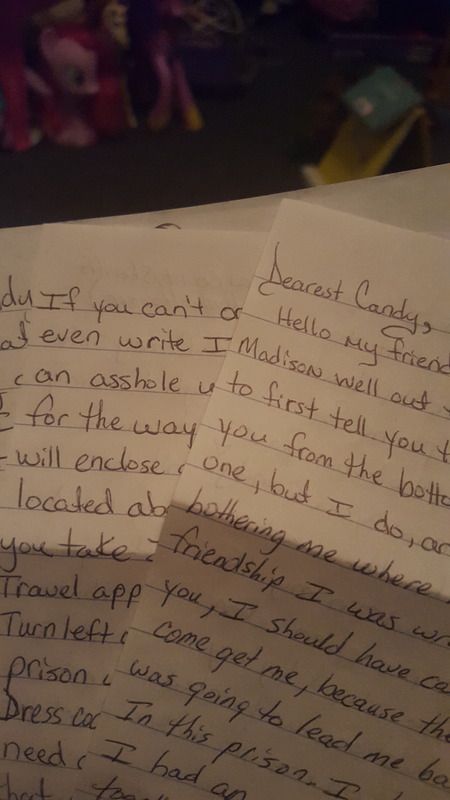 dy If you can't or
even write I
can an asshole
for the way
will enclose
located ab
you take
Travel app
Turn left
prison
Dress co
need
that
Dearest Candy,
Hello My friend
Madison well out
to first tell you t
you from the botto
one, but I do, an
bothering me where
friendship I was wr
you, I should have ca
come get me, because the
was going to lead me ba
In this prison. I
I had an